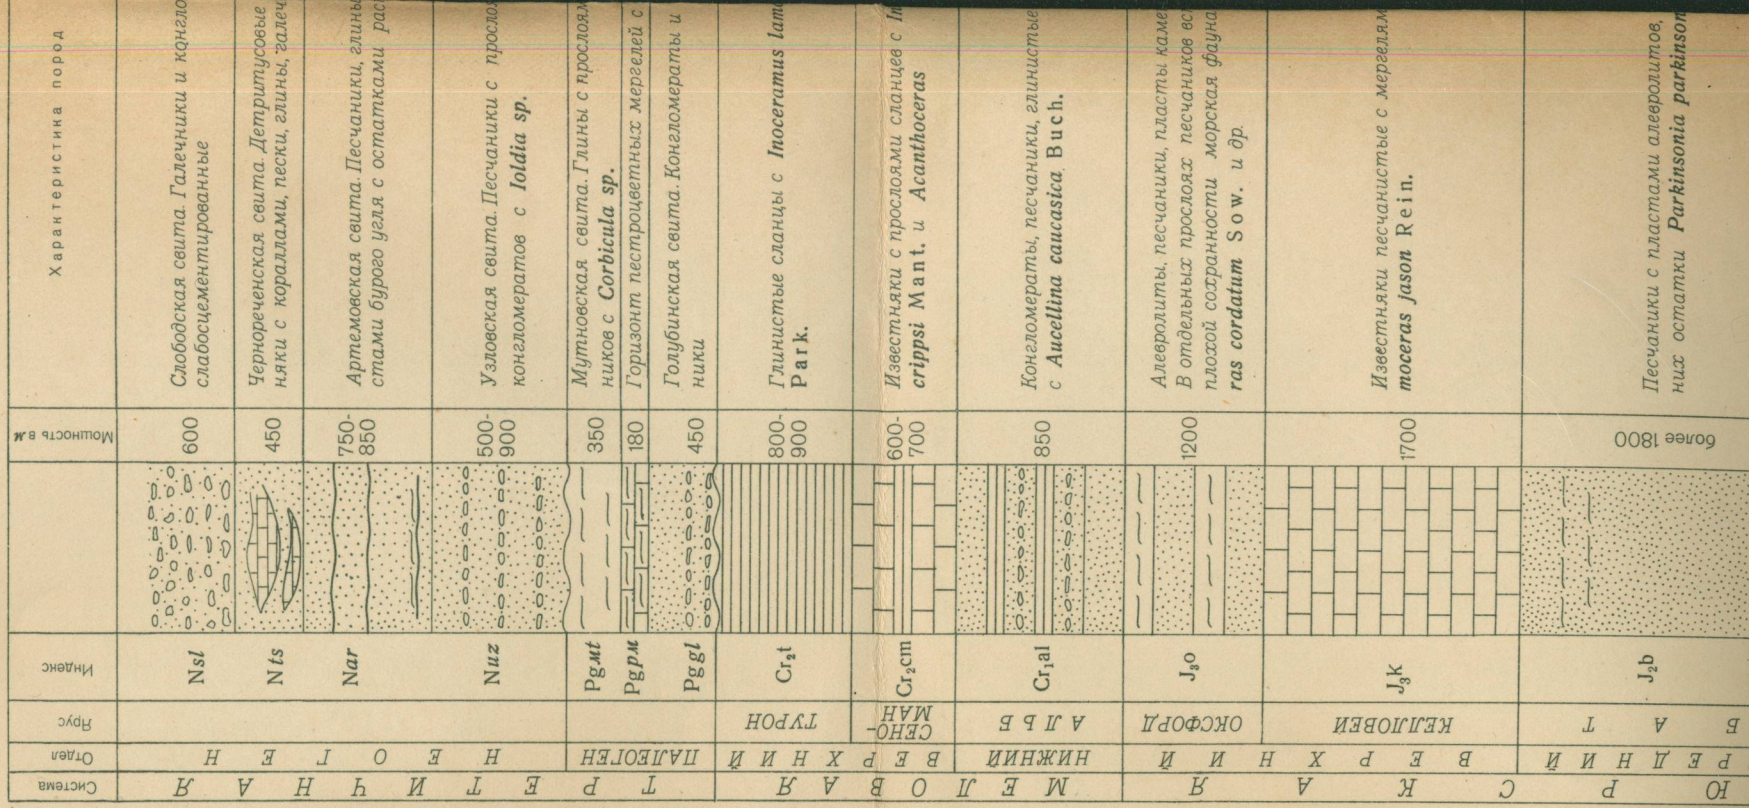 Система
Отдел
Ярус
Индекс
Мощность в м
Характеристика пород
ТРЕТИЧНАЯ
НЕОГЕН
Nsl
600
Слободская свита. Галечники и
слабосцементированные
Nts
450
Чернореченская свита. Детритусовые
няки с кораллами, пески, глины,
Nar
750-
850
Артемовская свита. Песчаники, глины
стами бурого угля с остатками
Nuz
500-
900
Узловская свита. Песчаники с
конгломератов с Ioldia sp.
ПАЛЕОГЕН
Pgmt
350
Мутновская свита. Глины с
ников с Corbicula sp.
Pgpm
180
Горизонт пестроцветных мергелей с
Pggl
450
Голубинская свита. Конгломераты и
ники
МЕЛОВАЯ
ВЕРХНИЙ
ТУРОН
Cr₂t
800-
900
Глинистые сланцы с Inoceramus
Park.
СЕНО-
МАН
Cr₂cm
600-
700
Известняки с прослоями сланцев с
crippsi Mant. и Acanthoceras
НИЖНИЙ
АЛЬБ
Cr₁al
850
Конгломераты, песчаники, глинистые
с Aucellina caucasica Buch.
ЮРСКАЯ
ВЕРХНИЙ
ОКСФОРД
J₃o
1200
Алевролиты, песчаники, пласты
В отдельных прослоях песчаников
плохой сохранности морская фауна
ras cordatum Sow. и др.
КЕЛЛОВЕЙ
J₃k
1700
Известняки песчанистые с
moceras jason Rein.
РЕДНИЙ
БАТ
J₂b
более 1800
Песчаники с пластами алевролитов,
них остатки Parkinsonia